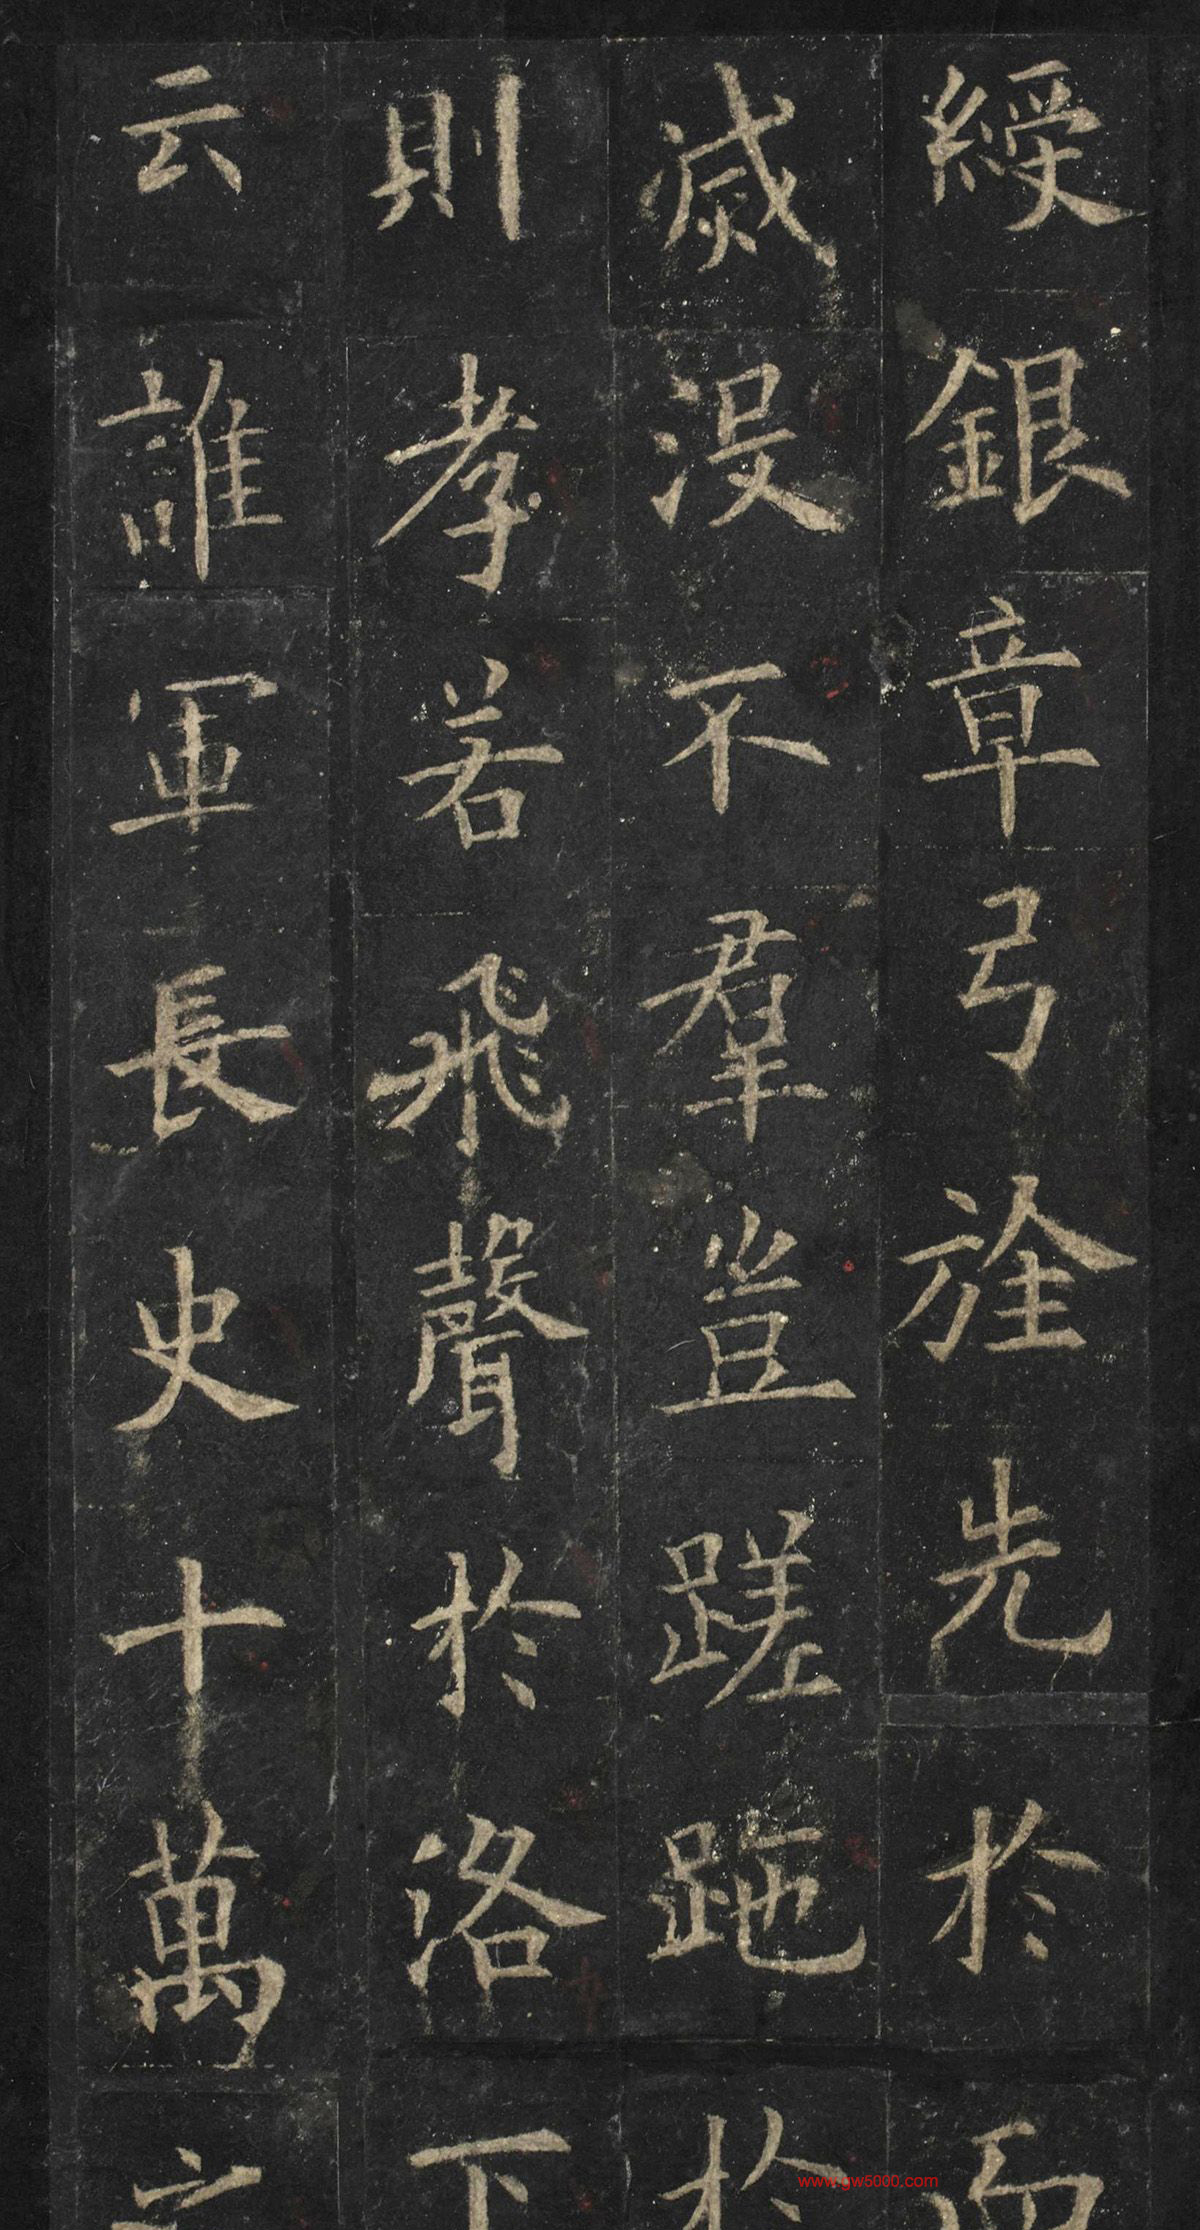 綬銀章弓旌先於
滅没不羣豈蹉跎於
則孝若飛聲於洛下
云誰軍長史十萬
www.gw5000.com